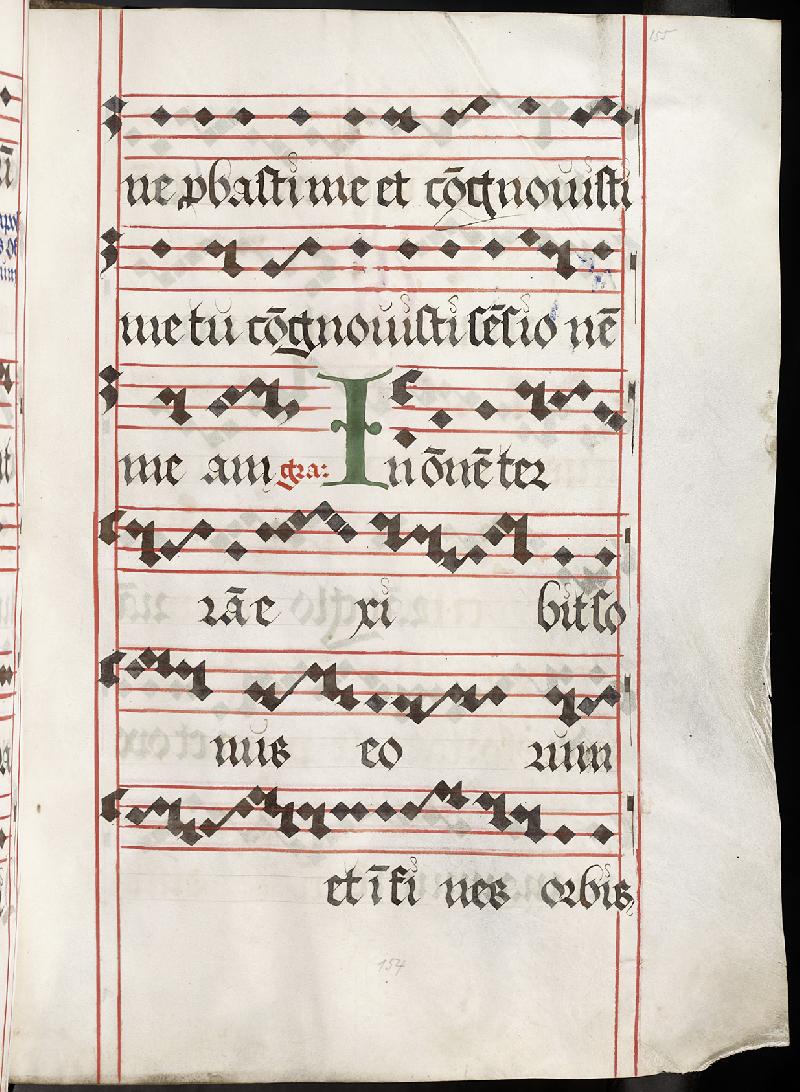 155
ne ꝓbasti me et cōgnouisti
me tu cōgnouisti sēsio nē
me am gra: In ōnē ter
rāe xi bit so
nus eo rum
et ī fi nes orbis
154